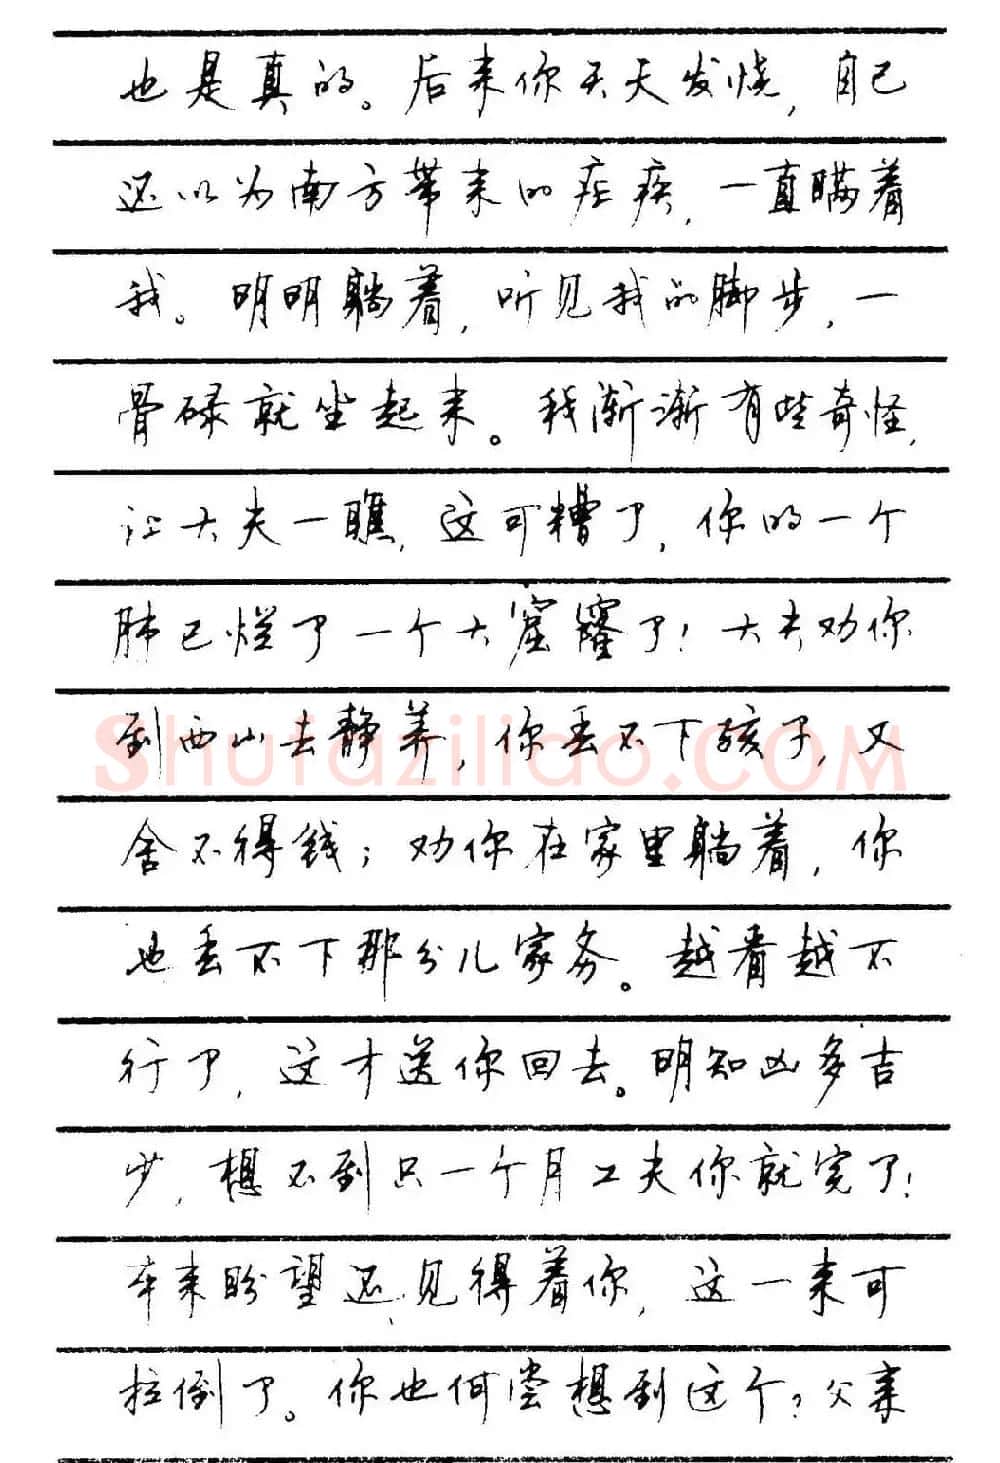 也是真的。后来你天天发烧，自己
还以为南方带来的疟疾，一直瞒着
我。明明躺着，听见我的脚步，一
骨碌就坐起来。我渐渐有些奇怪，
让大夫一瞧，这可糟了，你的一个
肺已烂了一个大窟窿了！大夫劝你
到西山去静养，你丢不下孩子，又
舍不得钱；劝你在家里躺着，你
也丢不下那份儿家务。越看越不
行了，这才送你回去。明知凶多吉
少，想不到只一个月工夫你就完了！
本来盼望还见得着你，这一来可
拉倒了。你也何尝想到这个？父亲
Shufaziliao.COM